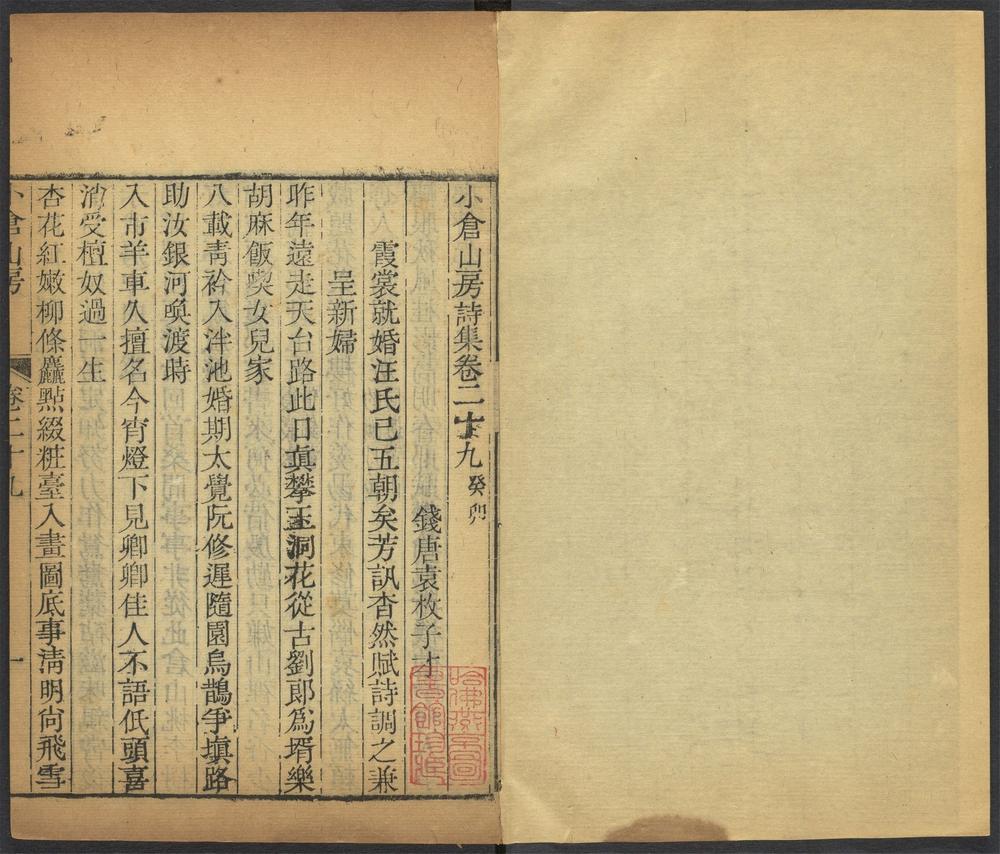 小倉山房詩集卷二十九 癸卯
錢唐袁枚子才
霞裳就婚汪氏已五朝矣芳訊杳然賦詩調之兼
呈新婦
昨年遠走天台路此日眞攀玉洞花從古劉郞爲壻樂
胡麻飯喫女兒家
八載靑衿入泮池婚期太覺阮修遲隨園烏鵲爭塡路
助汝銀河喚渡時
入市羊車久擅名今宵燈下見卿卿佳人不語低頭喜
消受檀奴過一生
杏花紅嫩柳條麤點綴粧臺入畫圖底事淸明尙飛雪
小倉山房
卷二十九
一
哈佛燕京圖
書館珍藏